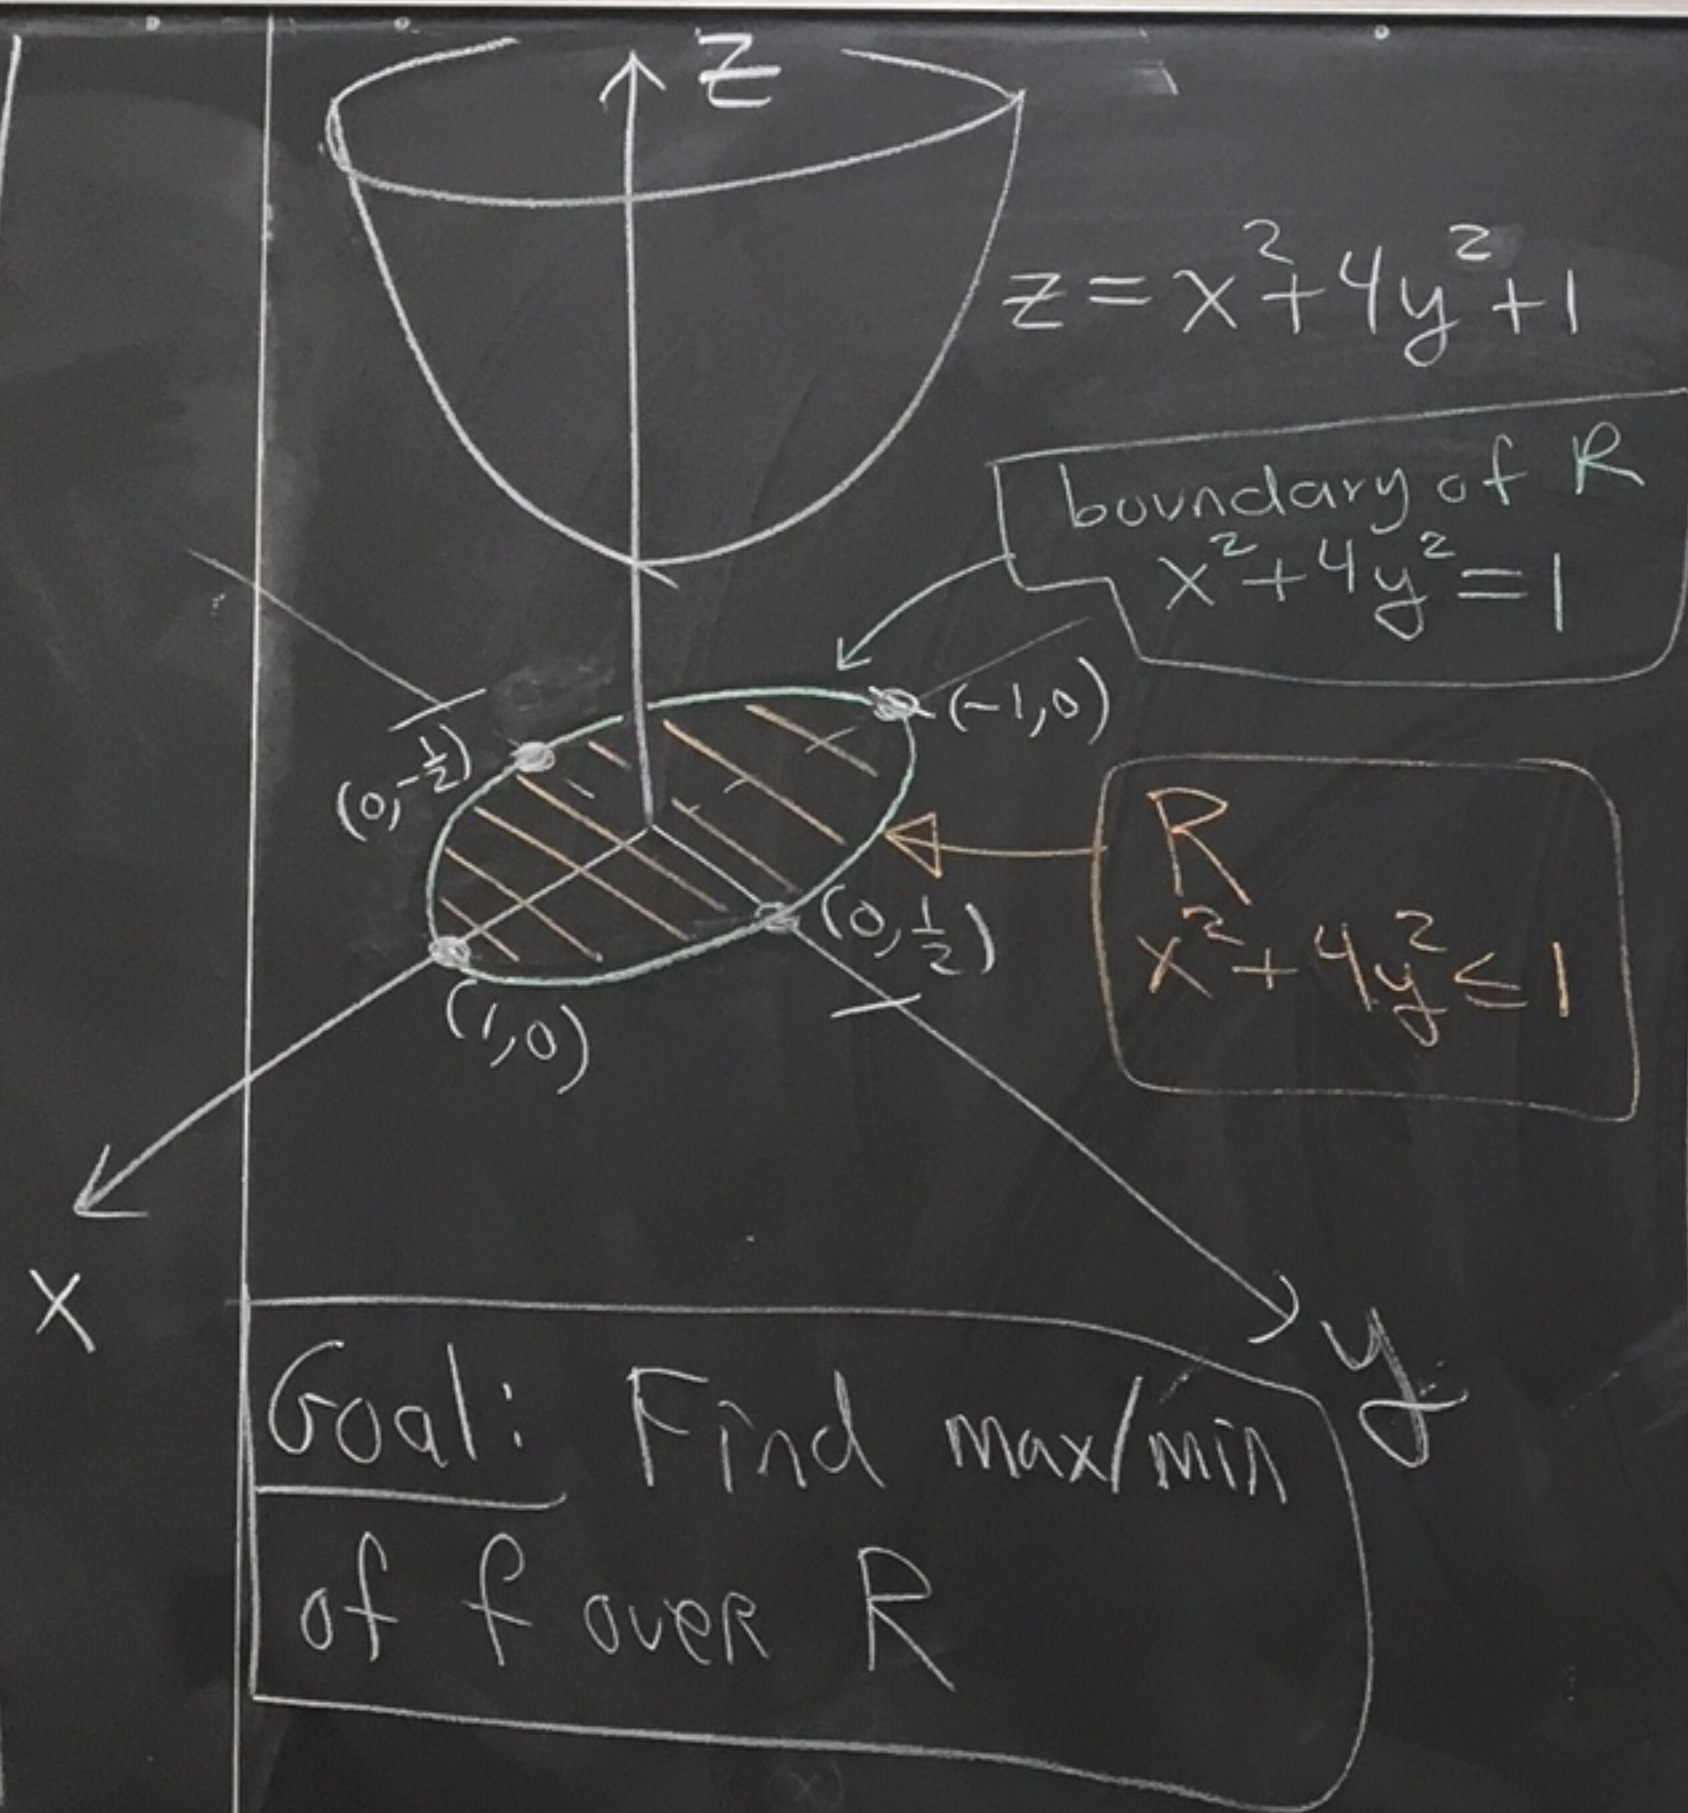 z
z = x² + 4y² + 1
boundary of R
x² + 4y² = 1
(-1,0)
(0,-½)
R
x² + 4y² ≤ 1
(0,½)
(1,0)
x
y
Goal: Find max/min
of f over R